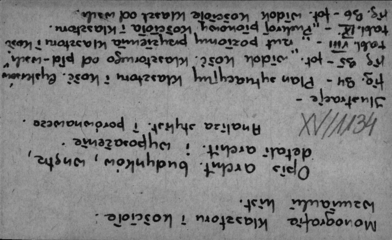 Monografia klasztoru i kościoła.
Wzmianki hist.
Opis archit. budynków, wnętrz,
detali archit. i wyposażenie.
Analiza stylist. i porównawcza.
XV/1134
Ilustracje -
fig. 84 - Plan sytuacyjny klasztoru i kośc.
fig. 85 - fot. „ widok kośc. klasztornego od płd-wsch."
tabl. VIII - „ rzut poziomy przyziemia klasztoru i kośc
tabl. IX - „ Przekrój pionowy kościoła i klasztoru.
fig. 86 - fot. widok kościoła klaszt. od wsch.